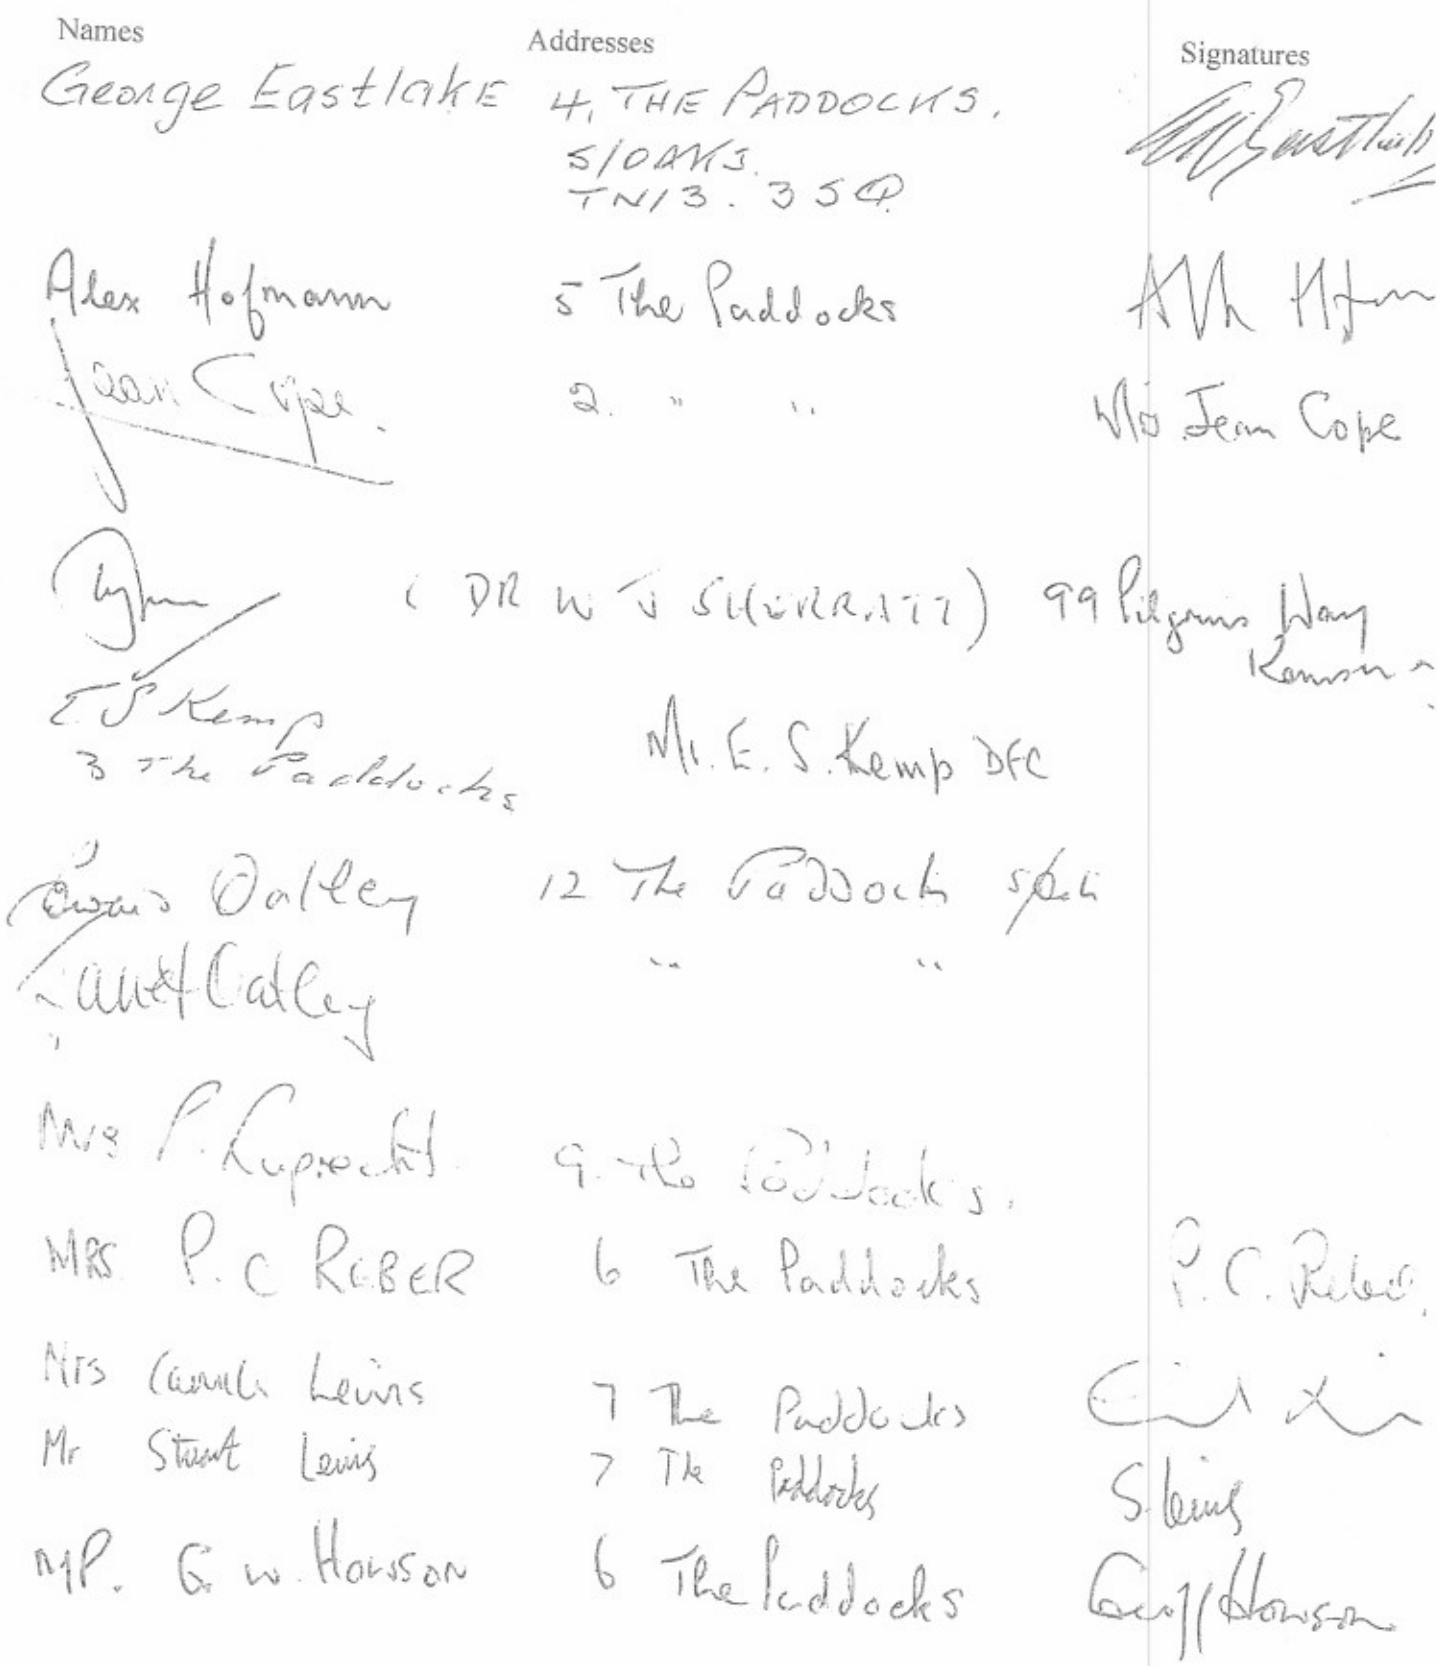 Names Addresses Signatures
George Eastlake 4, THE PADDOCKS.
S/OAKS.
TN13. 3SQ
Alex Hofmann 5 The Paddocks
Jean Cope. 2. " " Jean Cope
(DR W J SHERRATT) 99 Pilgrims Way
E S Kemp Mr. E. S. Kemp DFC
3 The Paddocks
Oatley 12 The Paddocks
Janet Oatley " "
Mrs P. Ruprecht 9. The Paddocks.
MRS P. C REBER 6 The Paddocks P. C. Reber.
Mrs Camilla Lewis 7 The Paddocks
Mr Stuart Lewis 7 The Paddocks S. Lewis
MR. G. W. HOWSON 6 The Paddocks Geoff Howson